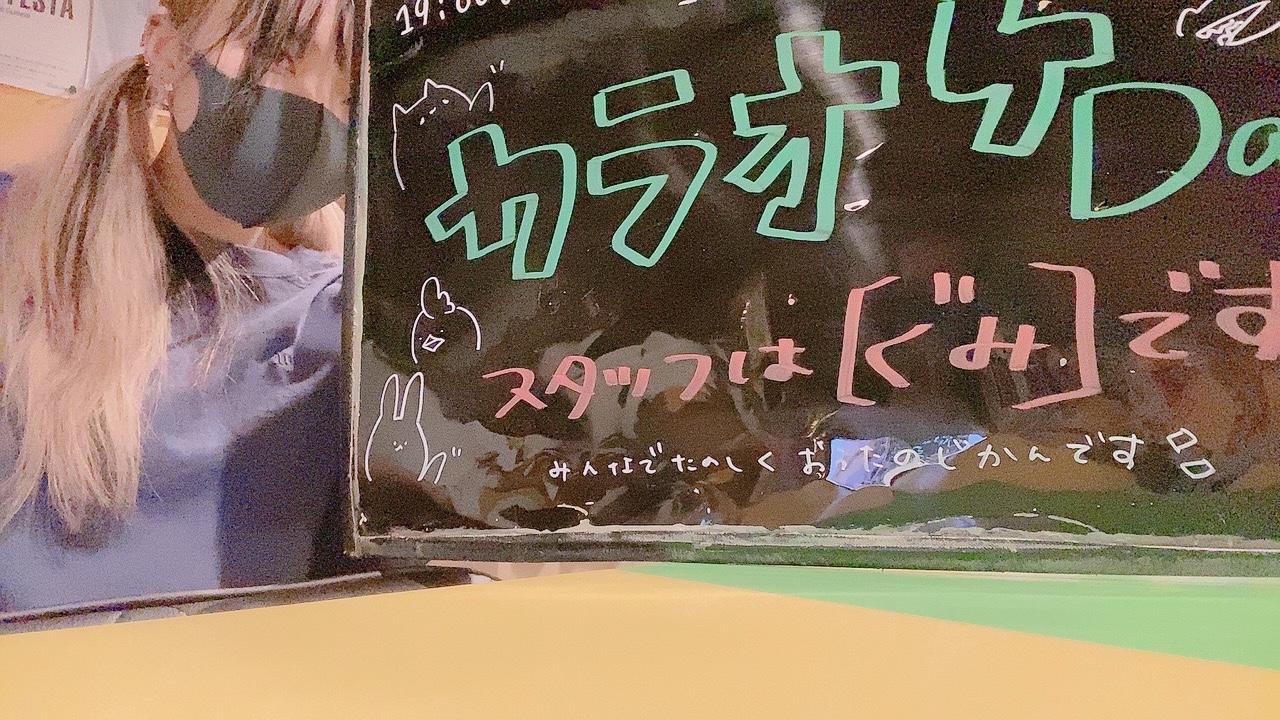 ESTA
19:00
カラオケDa
スタッフは[ぐみ]です
みんなでたのしくおうたのじかんです